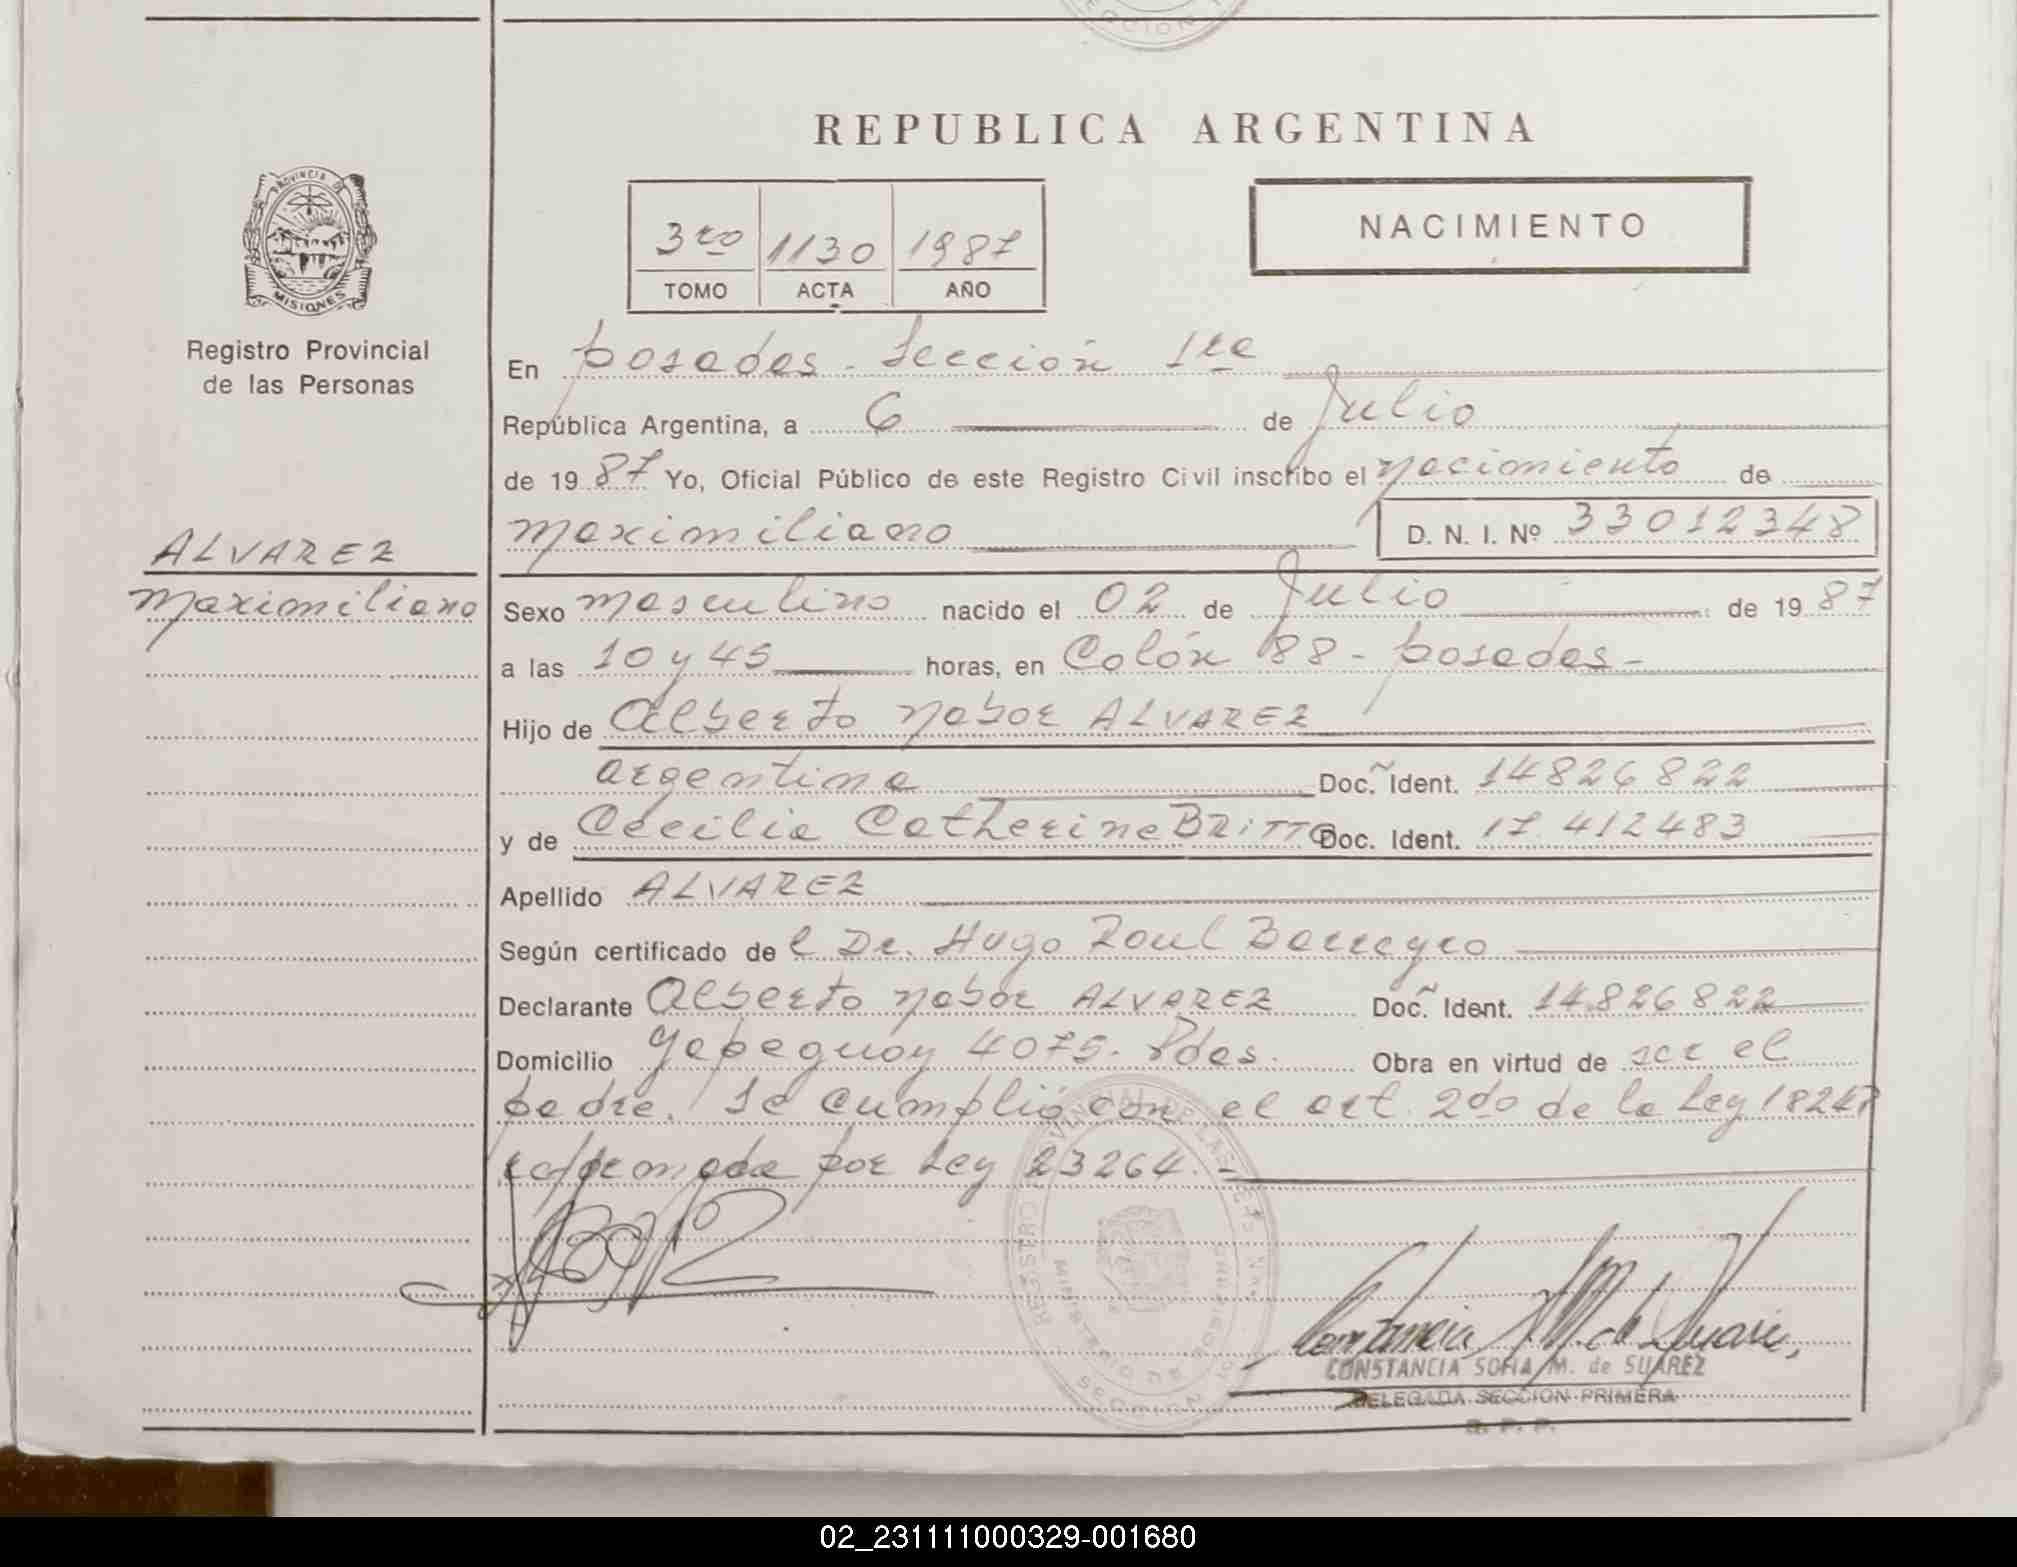 SECCION
REPUBLICA ARGENTINA
PROVINCIA DE
MISIONES
3ro 1130 1987
TOMO ACTA AÑO
NACIMIENTO
Registro Provincial
de las Personas
ALVAREZ
Maximiliano
En Posadas - Sección 1ra
República Argentina, a 6 de Julio
de 1987 Yo, Oficial Público de este Registro Civil inscribo el nacimiento de
Maximiliano D. N. I. Nº 33012348
Sexo masculino nacido el 02 de Julio de 1987
a las 10 y 45 horas, en Colón 88 - Posadas -
Hijo de Alberto Nabor ALVAREZ
argentina Doc. Ident. 14826822
y de Cecilia Catherine BRITTO Doc. Ident. 17.412483
Apellido ALVAREZ
Según certificado del Dr. Hugo Raul Barreyro
Declarante Alberto Nabor ALVAREZ Doc. Ident. 14.826822
Domicilio Yapeguay 4075. Pdas. Obra en virtud de ser el
padre. Se cumplió con el art. 2do de la Ley 18248
reformada por Ley 23264. -
REGISTRO PROVINCIAL DE LAS PERSONAS
MINISTERIO DE GOBIERNO
MISIONES
Constancia S. M. de Suarez
CONSTANCIA SOFIA M. de SUAREZ
DELEGADA SECCION PRIMERA
R. P. P.
02_231111000329-001680